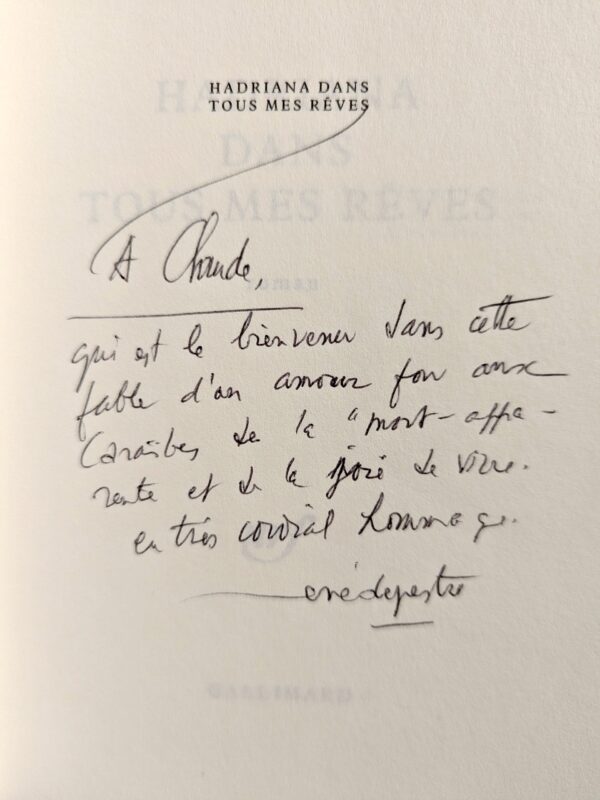 HADRIANA DANS
TOUS MES RÊVES
A Claude,
qui est le bienvenu dans cette
fable d'un amour fou aux
Caraïbes de la "mort-appa-
rente et de la joie de vivre.
en très cordial hommage.
enédepestre
HADRIANA
DANS
TOUS MES RÊVES
roman
GALLIMARD